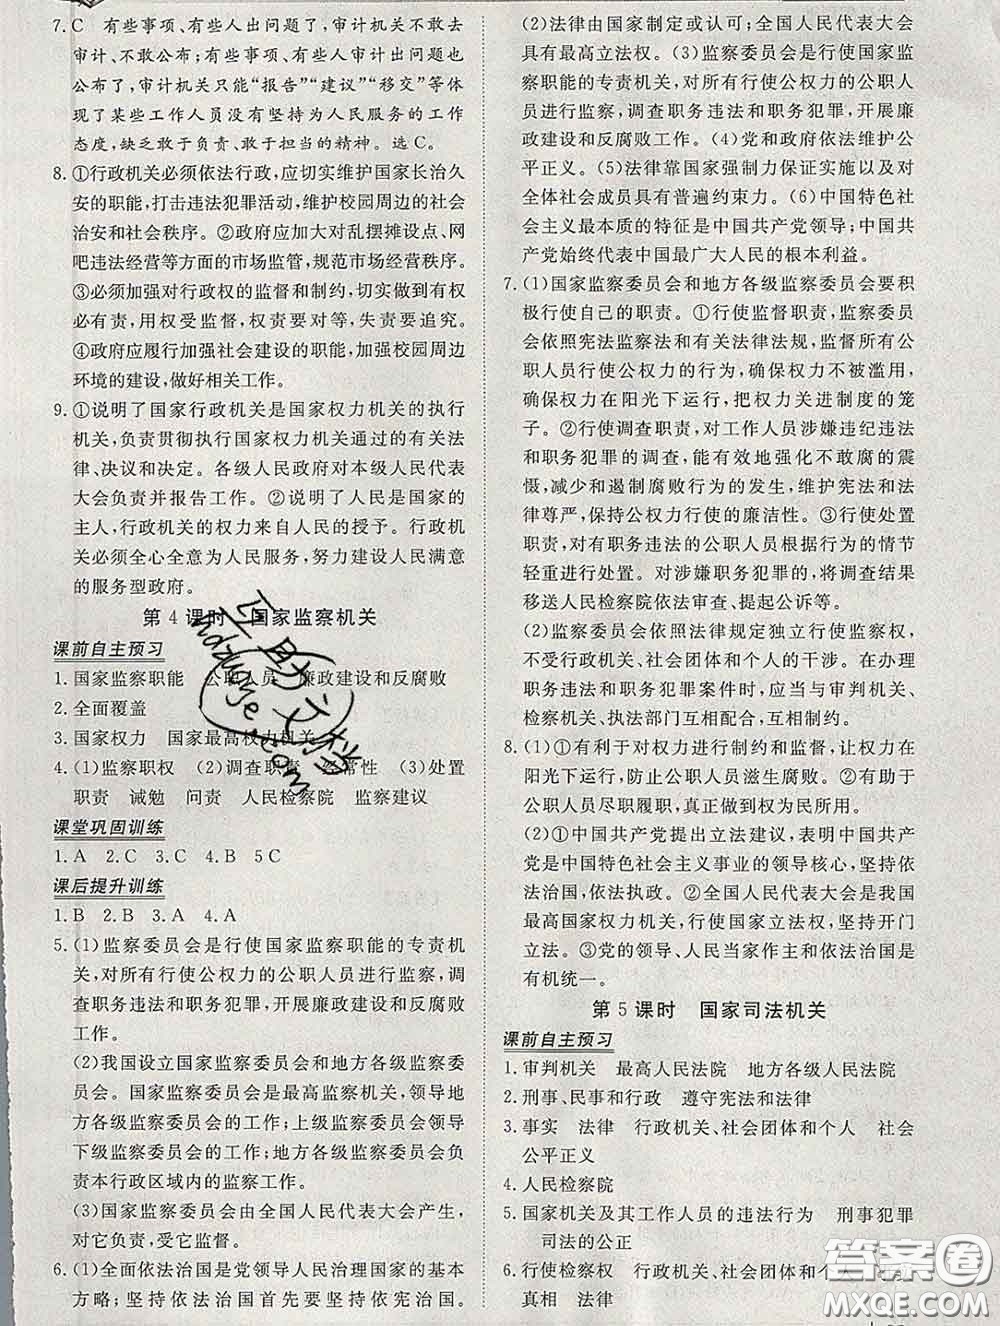 7. C　有些事项、有些人出问题了,审计机关不敢去
审计、不敢公布;有些事项、有些人审计出问题也
公布了,审计机关只能“报告”“建议”“移交”等体
现了某些工作人员没有坚持为人民服务的工作
态度,缺乏敢于负责、敢于担当的精神。选C。
8. ①行政机关必须依法行政,应切实维护国家长治久
安的职能,打击违法犯罪活动,维护校园周边的社会
治安和社会秩序。②政府应加大对乱摆摊设点、网
吧违法经营等方面的市场监管,规范市场经营秩序。
③必须加强对行政权的监督和制约,切实做到有权
必有责,用权受监督,权责要对等,失责要追究。
④政府应履行加强社会建设的职能,加强校园周边
环境的建设,做好相关工作。
9. ①说明了国家行政机关是国家权力机关的执行
机关,负责贯彻执行国家权力机关制定的有关法
律、决议和决定。各级人民政府对本级人民代表
大会负责并报告工作。②说明了人民是国家的
主人,行政机关的权力来自人民的授予。行政机
关必须全心全意为人民服务,努力建设人民满意
的服务型政府。
第 4 课时　国家监察机关
课前自主预习
1. 国家监察职能　公职人员　廉政建设和反腐败
2. 全面覆盖
3. 国家权力　国家最高权力机关
4. (1)监察职权　(2)调查职责　经常性　(3)处置
职责　诫勉　问责　人民检察院　监察建议
课堂巩固训练
1. A　2. C　3. C　4. B　5 C
课后提升训练
1. B　2. B　3. A　4. A
5. (1)监察委员会是行使国家监察职能的专责机
关,对所有行使公权力的公职人员进行监察,调
查职务违法和职务犯罪,开展廉政建设和反腐败
工作。
(2)我国设立国家监察委员会和地方各级监察委
员会。国家监察委员会是最高监察机关,领导地
方各级监察委员会的工作;上级监察委员会领导
下级监察委员会的工作;地方各级监察委员会负
责本行政区域内的监察工作。
(3)国家监察委员会由全国人民代表大会产生,
对它负责,受它监督。
6. (1)全面依法治国是党领导人民治理国家的基本
方略;坚持依法治国首先要坚持依宪治国。
(2)法律由国家制定或认可;全国人民代表大会
具有最高立法权。(3)监察委员会是行使国家监
察职能的专责机关,对所有行使公权力的公职人
员进行监察,调查职务违法和职务犯罪,开展廉
政建设和反腐败工作。(4)党和政府依法维护公
平正义。(5)法律靠国家强制力保证实施以及对
全体社会成员具有普遍约束力。(6)中国特色社
会主义最本质的特征是中国共产党领导;中国共
产党始终代表中国最广大人民的根本利益。
7. (1)国家监察委员会和地方各级监察委员会要积
极行使自己的职责。①行使监督职责,监察委员
会依照宪法监察法和有关法律法规,监督所有公
职人员行使公权力的行为,确保权力不被滥用,
确保权力在阳光下运行,把权力关进制度的笼
子。②行使调查职责,对工作人员涉嫌违纪违法
和职务犯罪的调查,能有效地强化不敢腐的震
慑,减少和遏制腐败行为的发生,维护宪法和法
律尊严,保持公权力行使的廉洁性。③行使处置
职责,对有职务违法的公职人员根据行为的情节
轻重进行处置。对涉嫌职务犯罪的,将调查结果
移送人民检察院依法审查、提起公诉等。
(2)监察委员会依照法律规定独立行使监察权,
不受行政机关、社会团体和个人的干涉。在办理
职务违法和职务犯罪案件时,应当与审判机关、
检察机关、执法部门互相配合,互相制约。
8. (1)①有利于对权力进行制约和监督,让权力在
阳光下运行,防止公职人员滋生腐败。②有助于
公职人员尽职履职,真正做到权为民所用。
(2)①中国共产党提出立法建议,表明中国共产
党是中国特色社会主义事业的领导核心,坚持依
法治国,依法执政。②全国人民代表大会是我国
最高国家权力机关,行使国家立法权,坚持开门
立法。③党的领导、人民当家作主和依法治国是
有机统一。
第 5 课时　国家司法机关
课前自主预习
1. 审判机关　最高人民法院　地方各级人民法院
2. 刑事、民事和行政　遵守宪法和法律
3. 事实　法律　行政机关、社会团体和个人　社会
公平正义
4. 人民检察院
5. 国家机关及其工作人员的违法行为　刑事犯罪
司法的公正
6. 行使检察权　行政机关、社会团体和个人
真相　法律
互助文档
hdzuoye.com
答案圈
MXQE.COM